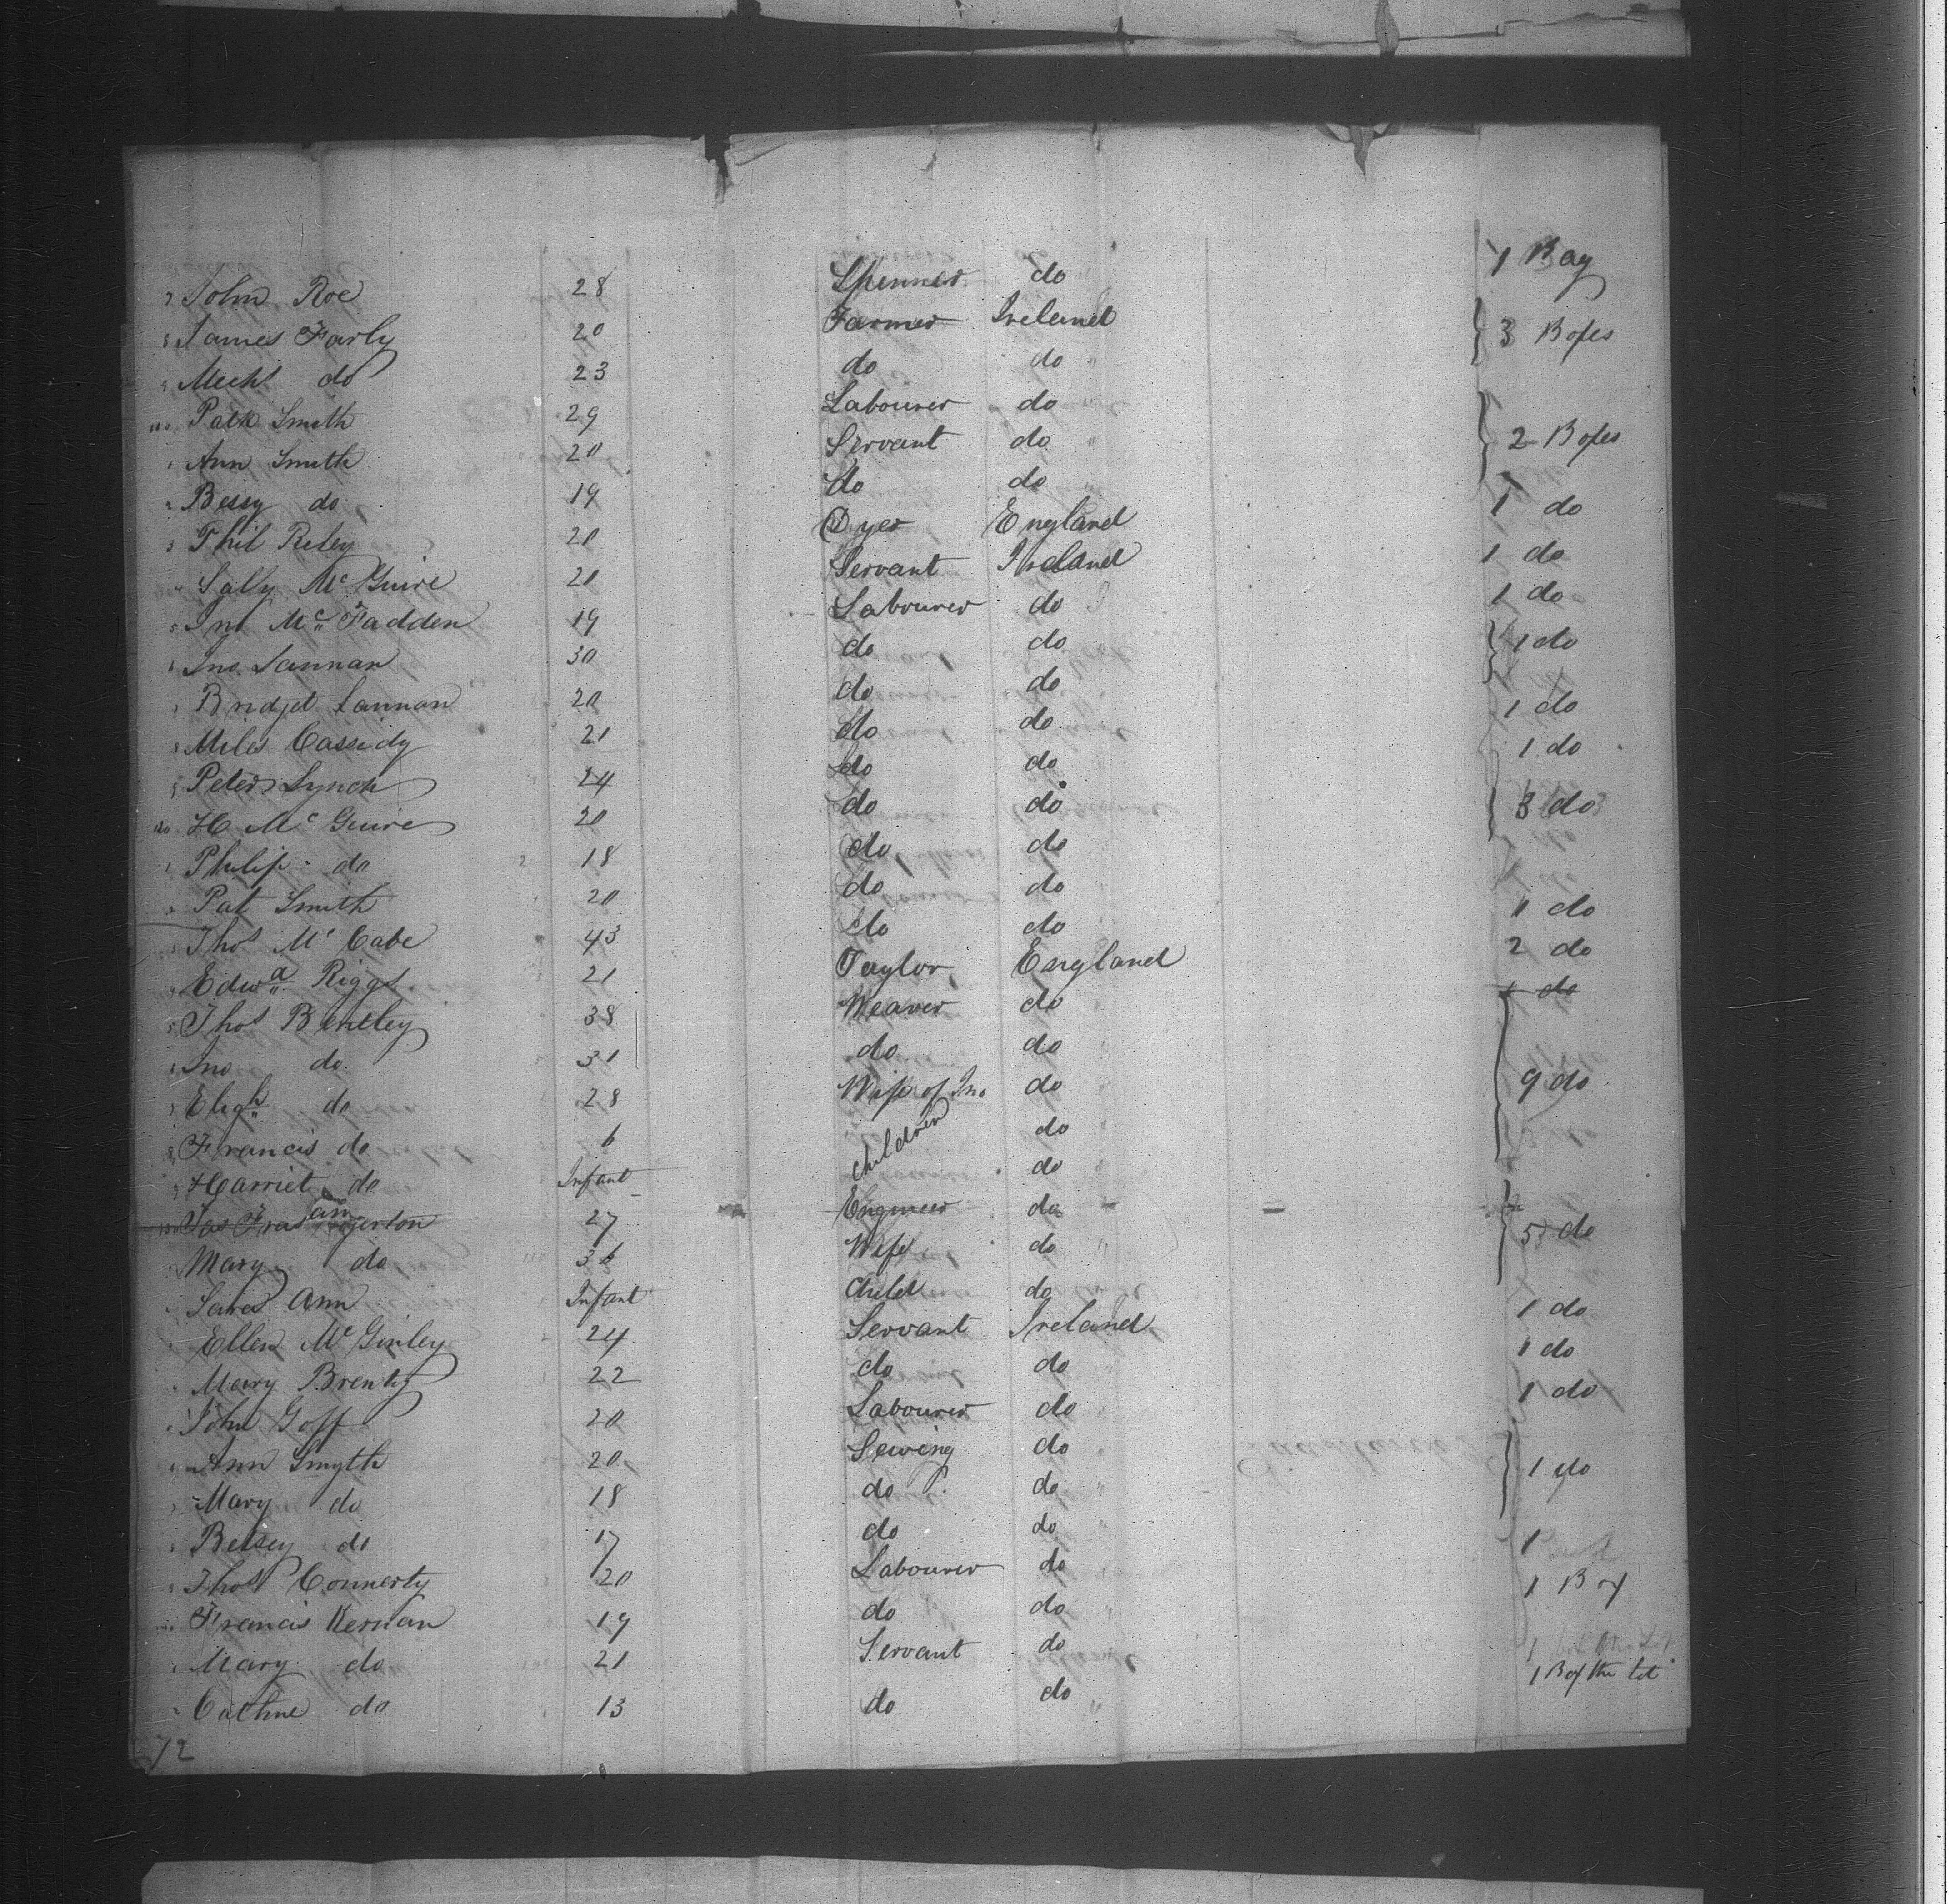 John Roe 28 Spinner do 1 Bag
James Farly 20 Farmer Ireland 3 Boxes
Michl do 23 do do
Patk Smith 29 Labourer do 2 Boxes
Ann Smith 20 Servant do
Bessy do 19 do do 1 do
Phil Reley 20 Dyer England 1 do
Sally McGuire 20 Servant Ireland 1 do
Jno McFadden 19 Labourer do 1 do
Jno Lannan 30 do do
Bridjet Lannan 20 do do 1 do
Miles Cassidy 21 do do 1 do
Peter Lynch 24 do do 3 do
H McGuire 20 do do
Philip do 18 do do
Pat Smith 20 do do 1 do
Thos McCabe 43 do do 2 do
Edwd Riggs 21 Taylor England 1 do
Thos Bentley 38 Weaver do 9 do
Jno do 31 do do
Eligh do 28 Wife of Jno do
Francis do 6 children do
Harriet do Infant do
Jas 27 Engineer do 5 do
Mary do 36 Wife do
Sarah Ann Infant Child do 1 do
Ellen McGinley 24 Servant Ireland 1 do
Mary Brenty 22 do do 1 do
John Goff 20 Labourer do
Ann Smyth 20 Sewing do 1 do
Mary do 18 do do
Betsey do 17 do do 1
Thos Connerty 20 Labourer do 1 Box
Francis Kernan 19 do do
Mary do 21 Servant do 1 Box the lot
Cathne do 13 do do
72